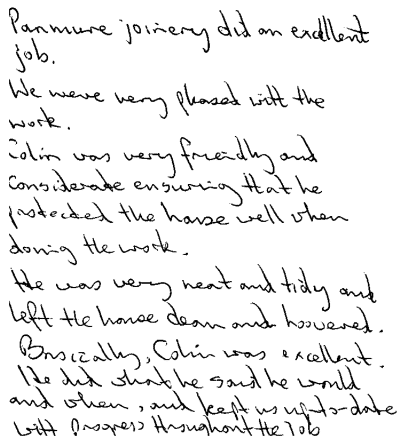 Panmure joinery did an excellent
job.
We were very pleased with the
work.
Colin was very friendly and
considerate ensuring that he
protected the house well when
doing the work.
He was very neat and tidy and
left the house clean and hoovered.
Basically, Colin was excellent.
He did what he said he would
and when, and kept us up-to-date
with progress throughout the job